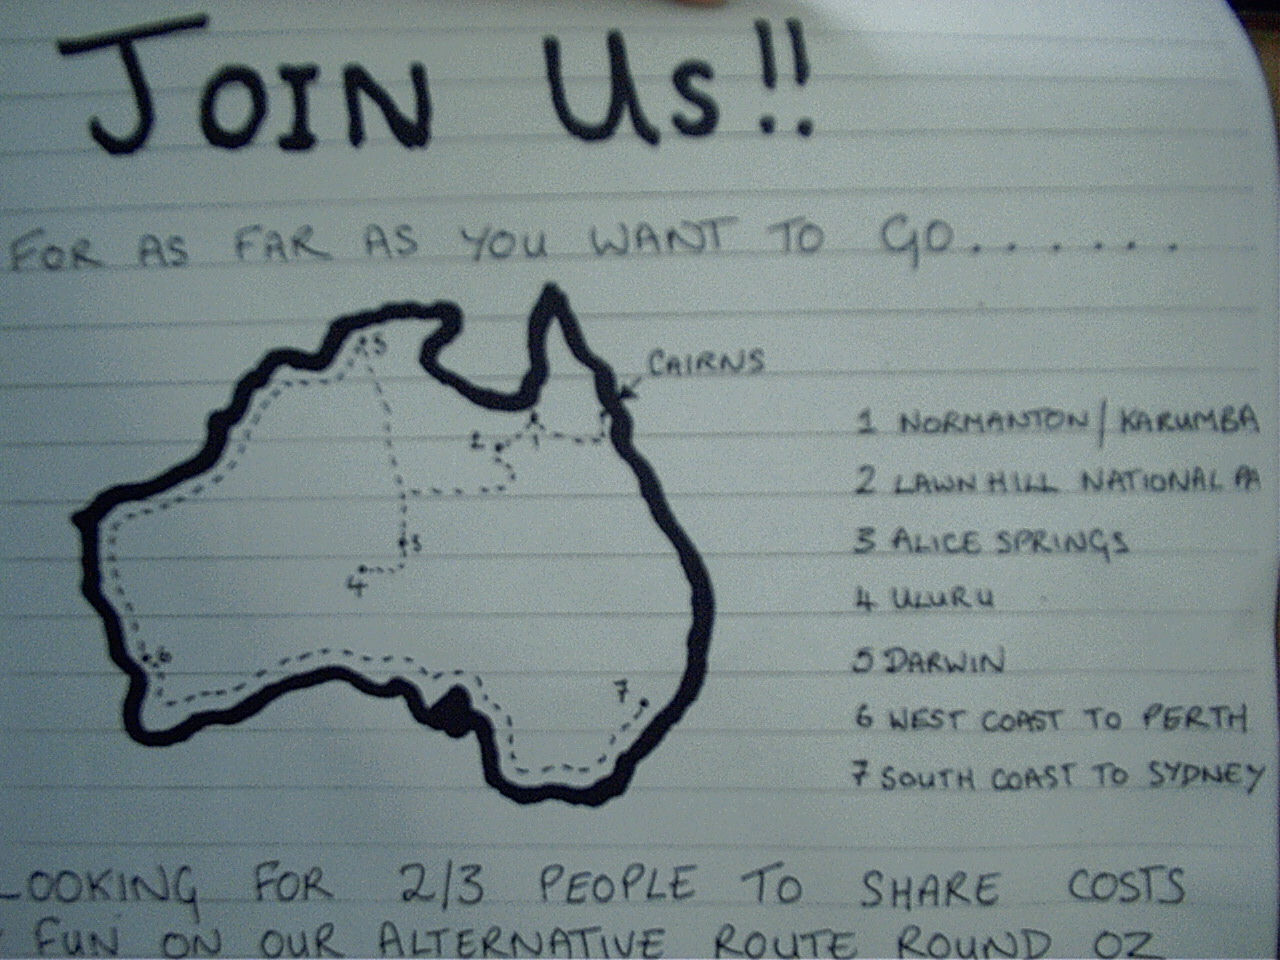 JOIN Us!!
FOR AS FAR AS YOU WANT TO GO.......
CAIRNS
5
1 NORMANTON/KARUMBA
2
1
2 LAWN HILL NATIONAL PA
3
3 ALICE SPRINGS
4
4 ULURU
5 DARWIN
6
7
6 WEST COAST TO PERTH
7 SOUTH COAST TO SYDNEY
LOOKING FOR 2/3 PEOPLE TO SHARE COSTS
FUN ON OUR ALTERNATIVE ROUTE ROUND OZ